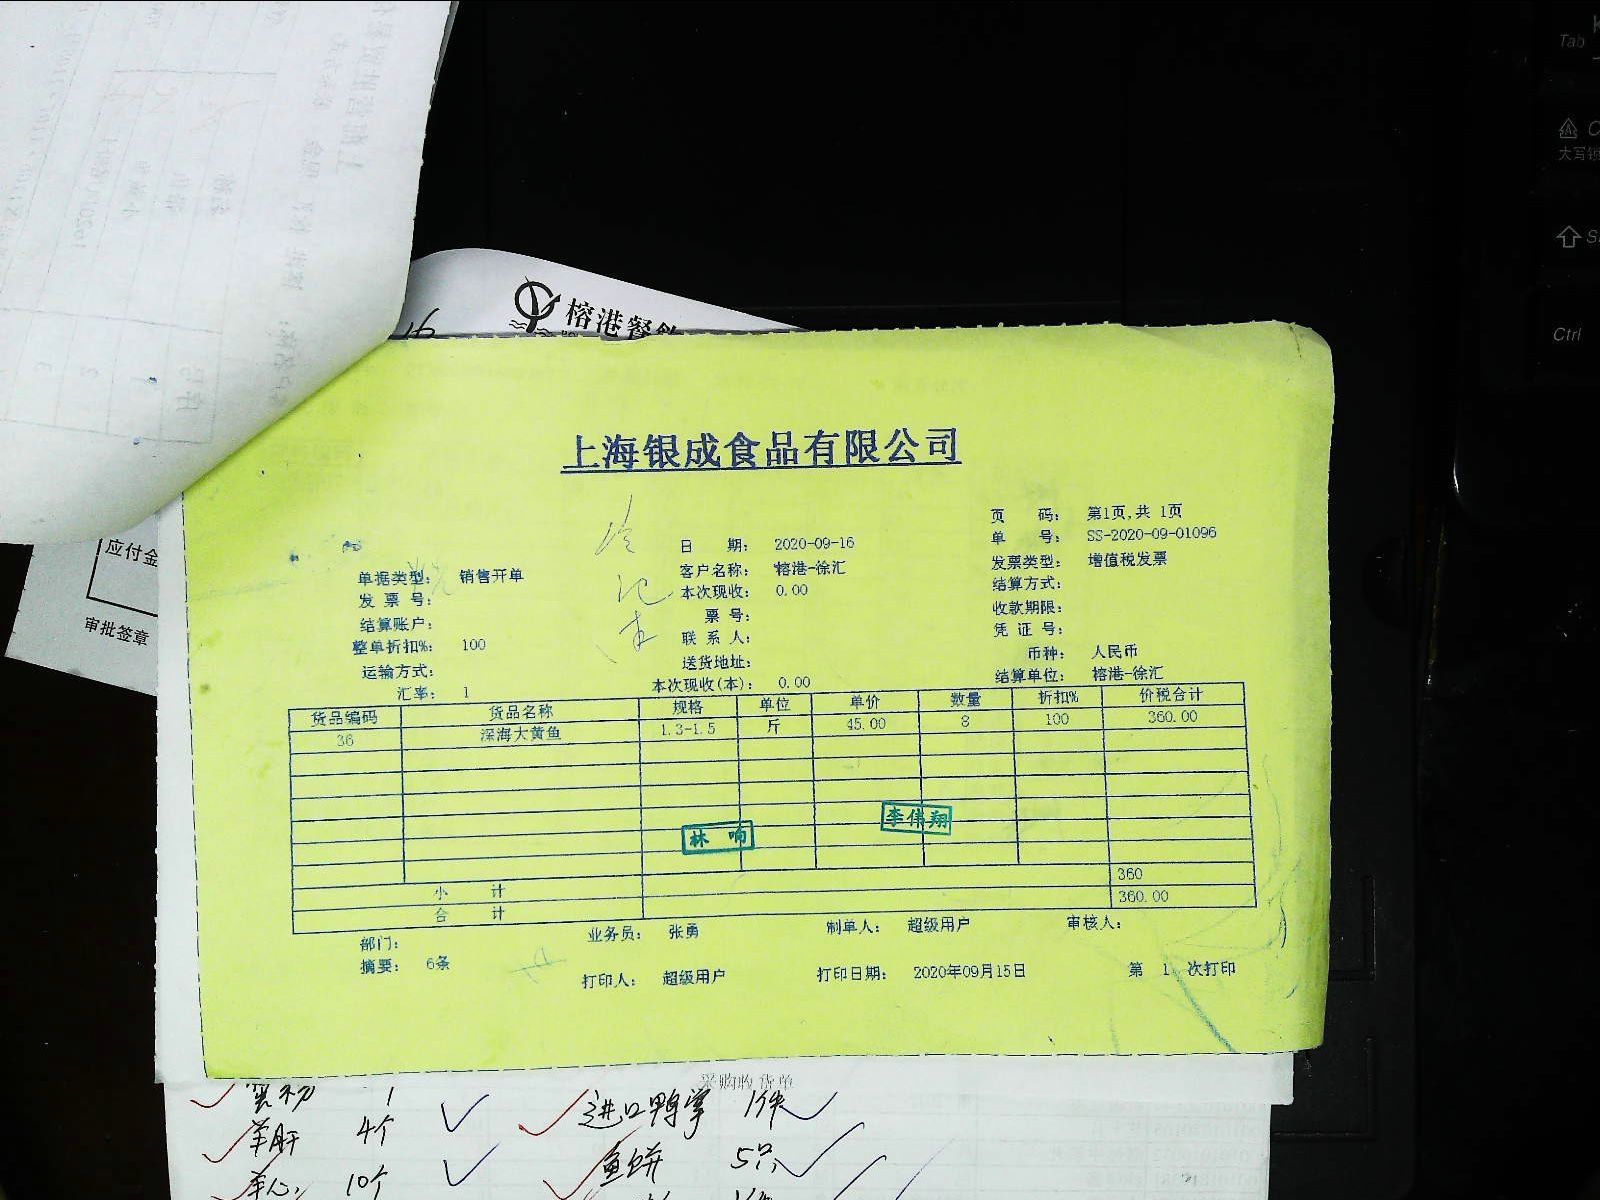 榕港餐飲
应付金
审批签章
上海银成食品有限公司
页 码: 第1页,共 1页
单 号: SS-2020-09-01096
日 期: 2020-09-16
发票类型: 增值税发票
单据类型: 销售开单
客户名称: 榕港-徐汇
结算方式:
发 票 号:
本次现收: 0.00
收款期限:
结算账户:
票 号:
凭 证 号:
整单折扣%: 100
联 系 人:
币种: 人民币
运输方式:
送货地址:
结算单位: 榕港-徐汇
汇率: 1
本次现收(本): 0.00
货品编码 货品名称 规格 单位 单价 数量 折扣% 价税合计
36 深海大黄鱼 1.3-1.5 斤 45.00 8 100 360.00
李伟翔
林 响
小 计 360
合 计 360.00
部门: 业务员: 张勇 制单人: 超级用户 审核人:
摘要: 6条 打印人: 超级用户 打印日期: 2020年09月15日 第 1 次打印
采购收货单
1 进口鸭掌 1件
羊肝 4个
鱼饼 5只
羊心 10个
Tab
大写锁
Ctrl